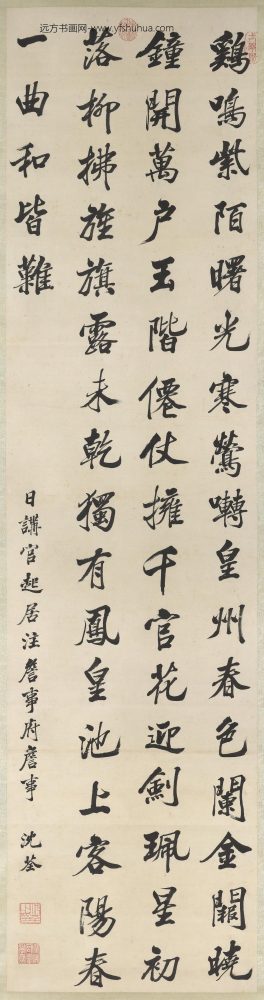 远方书画网 www.yfshuhua.com
鷄鳴紫陌曙光寒鶯囀皇州春色闌金闕曉
鐘開萬户玉階僊仗擁千官花迎劍珮星初
落柳拂旌旗露未乾獨有鳳皇池上客陽春
一曲和皆難
日講官起居注詹事府詹事 沈荃